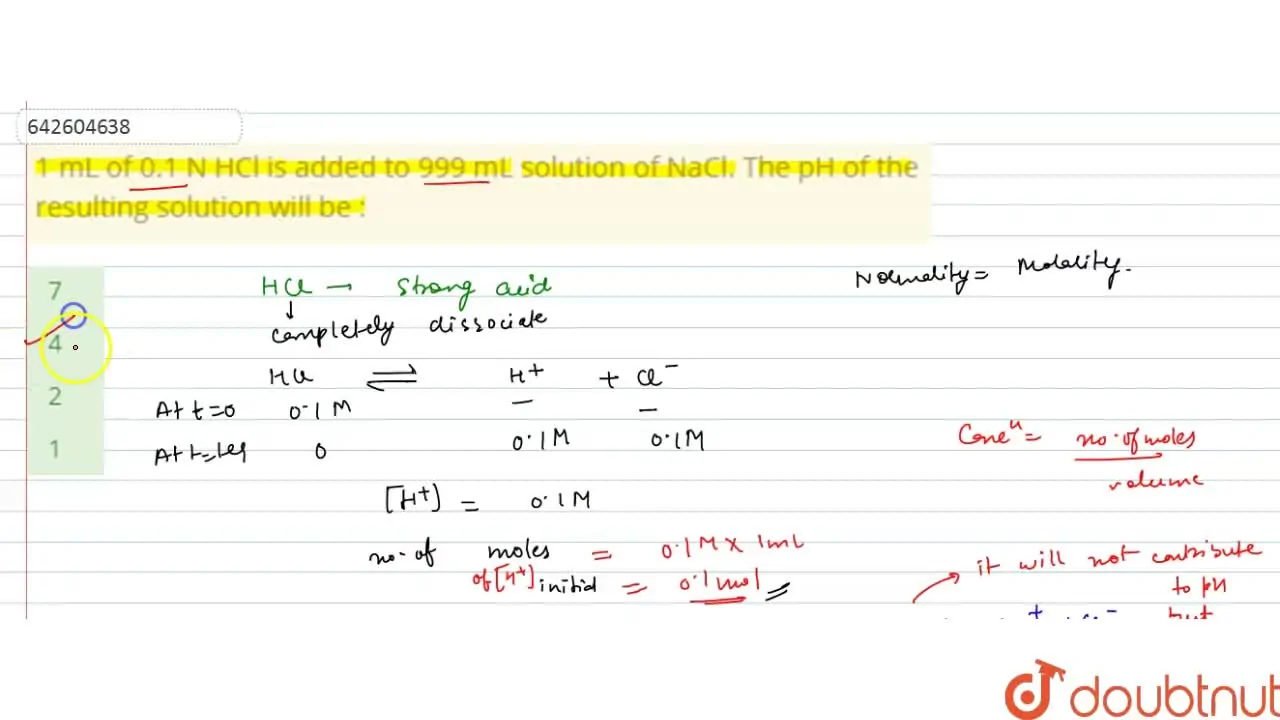 642604638
1 mL of 0.1 N HCl is added to 999 mL solution of NaCl. The pH of the
resulting solution will be :
7
4
2
1
HCl → Strong acid
↓
completely dissociate
Normality = Molality.
HCl ⇌ H+ + Cl-
At t=0 0.1 M - -
At t=teq 0 0.1M 0.1M
Concn = no. of moles
volume
[H+] = 0.1M
no. of moles = 0.1 M x 1mL
of [H+] initial = 0.1 mol
it will not contribute
to pH
but
doubtnut